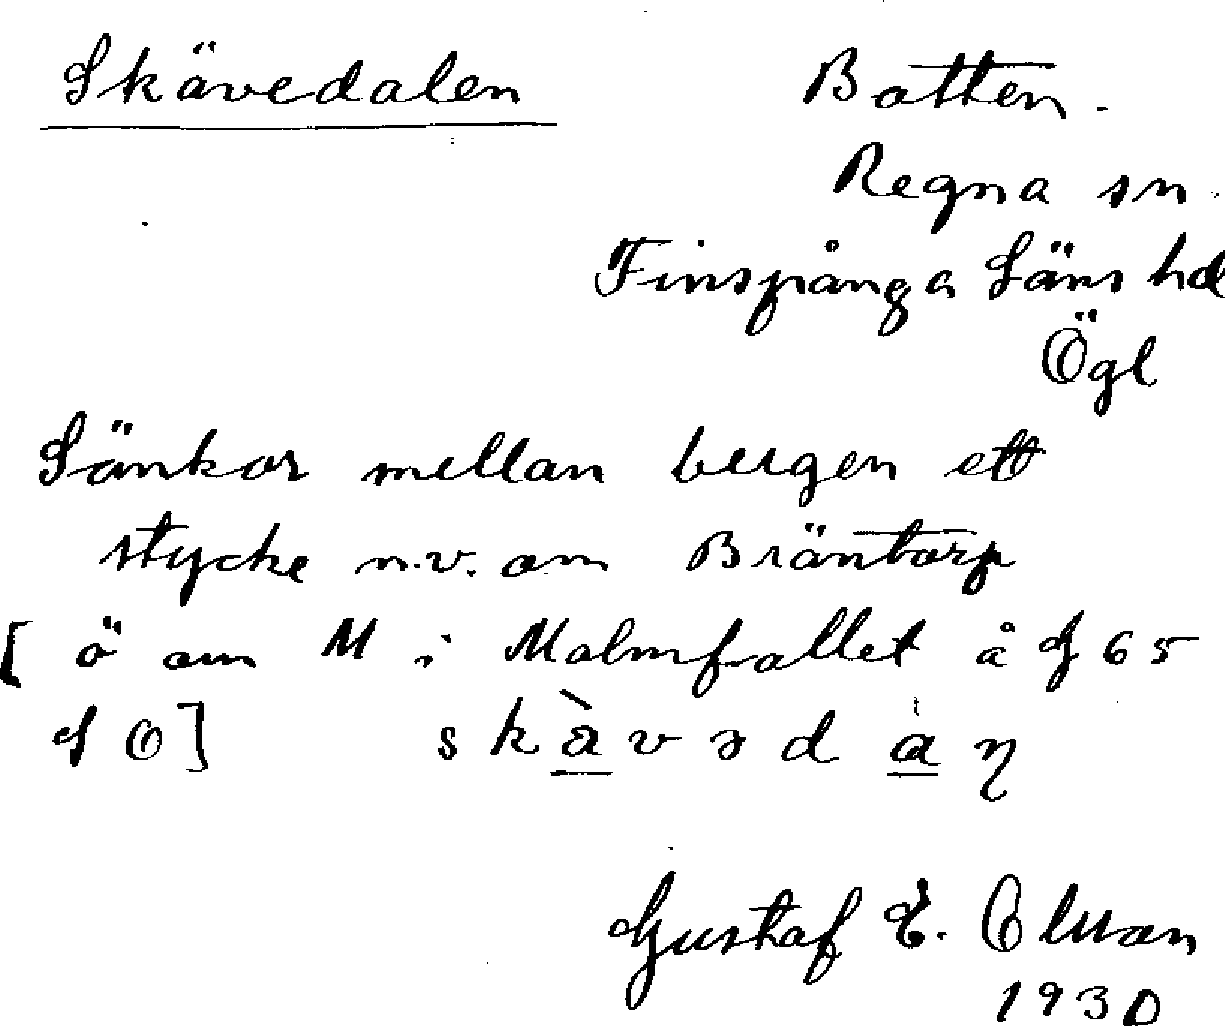 Skävedalen
Botten.
Regna sn.
Finspånga Läns hd
Ögl
Sänkor mellan bergen ett
stycke n.v. om Bräntorp
[ ö om M i Malmfallet å f 65
f O] skàvədaɳ
Gustaf E.
1930